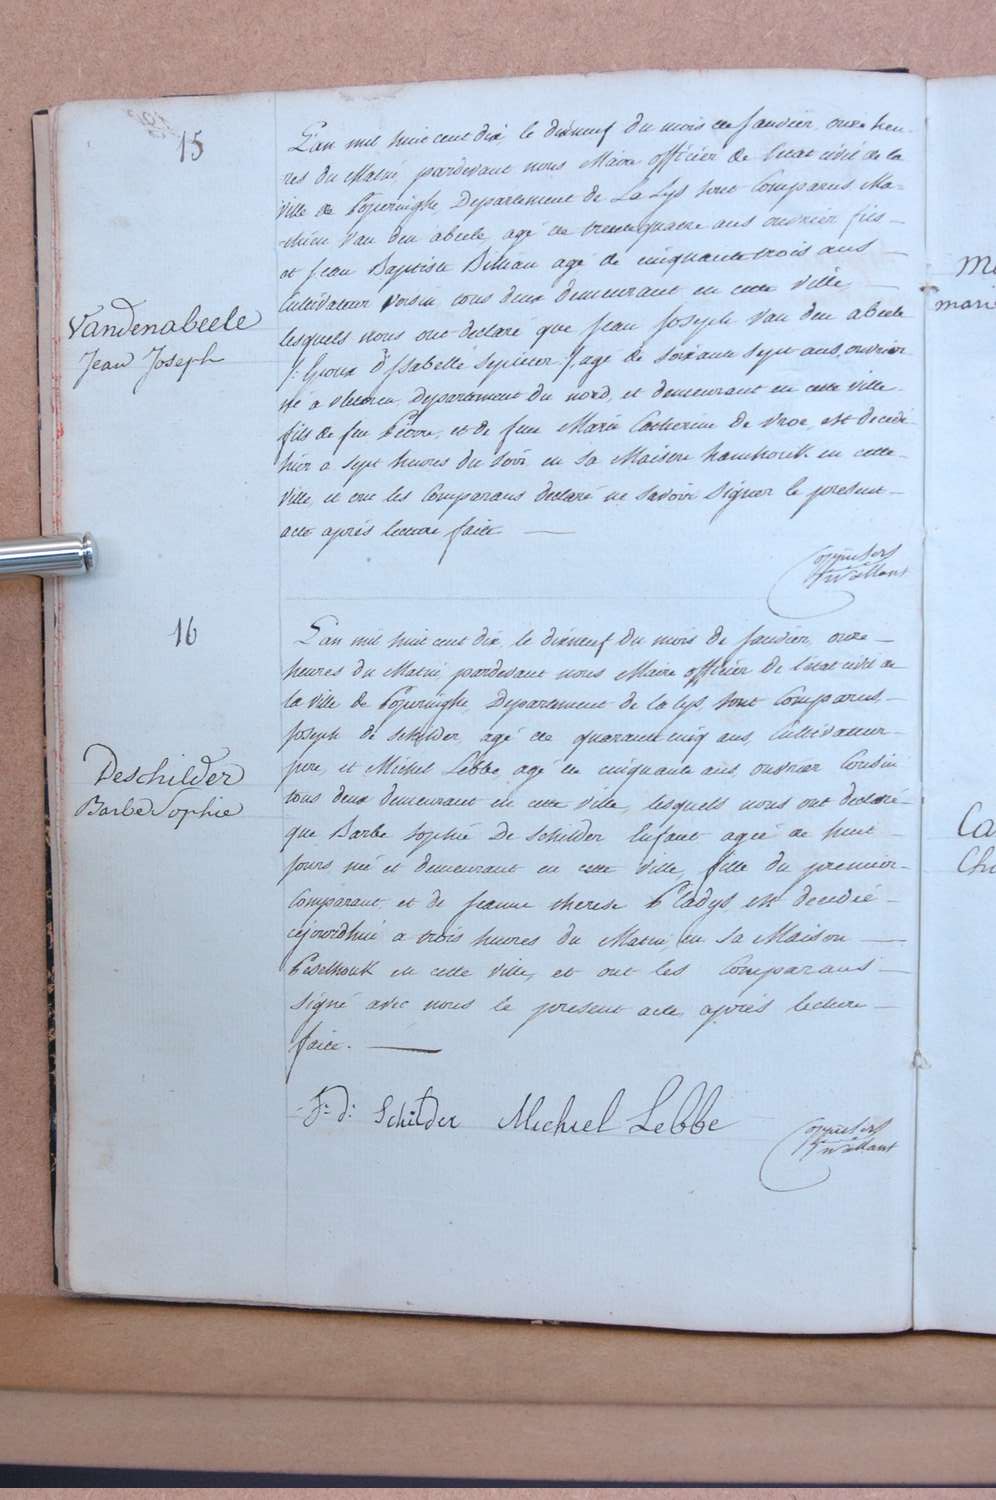 15
L'an mil huit cent dix, le dixneuf du mois de Janvier, onze heu-
res du Matin, pardevant nous Maire officier de l'etat civil de la
ville de Poperinghe, Departement de La Lys sont Comparus Ma-
thieu Van den abeele, agé de trente quatre ans ouvrier fils -
et Jean Baptiste Billiau agé de cinquante trois ans -
Cultivateur Voisin tous deux demeurant en cette ville, -
lesquels nous ont declaré que Jean Joseph Van den abeele
Vandenabeele
Jean Joseph
/: Epoux d'Isabelle :/ agé de soixante sept ans, ouvrier
né à Vleteren, Departement du nord, et demeurant en cette ville
fils de feu Pierre, et de feue Marie Catherine de Vroe, est decedé
hier a sept heures du soir en sa Maison hamhouk en cette
ville, et ont les Comparans declaré ne savoir signer le present -
acte après lecture faite
16
L'an mil huit cent dix, le dixneuf du mois de Janvier, onze -
heures du Matin, pardevant nous Maire officier de l'etat civil de
la ville de Poperinghe, Departement de la Lys, sont Comparus, -
Joseph de Schilder, agé de quarante cinq ans, Cultivateur -
pere, et Michel Lebbe, agé de cinquante ans, ouvrier Cousin
Deschilder
Barbe Sophie
tous deux demeurant en cette ville, lesquels nous ont declaré -
que Barbe Sophie De Schilder Enfant agée de huit -
jours née et demeurant en cette Ville, fille du premier -
Comparant, et de Jeanne therese Pladys, est decedée -
cejourd'hui a trois heures du Matin, en sa Maison -
Peselhouk en cette ville, et ont les Comparans -
signé avec nous le present acte après lecture -
faite.
J: d: Schilder Michiel Lebbe